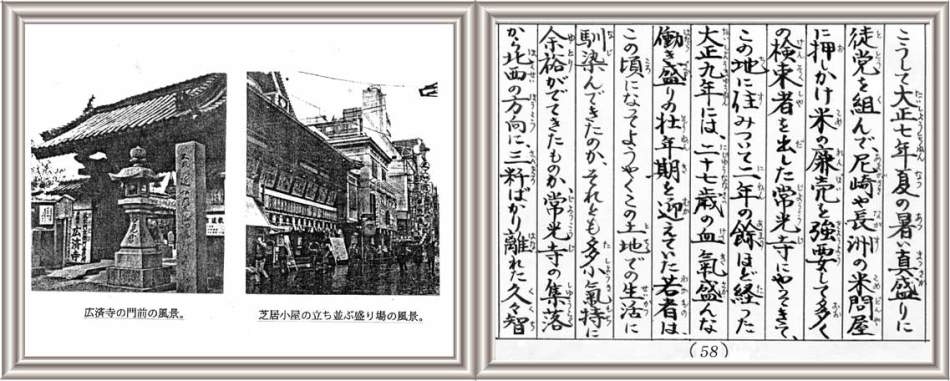 広済寺
広済寺の門前の風景。
芝居小屋の立ち並ぶ盛り場の風景。
こうして大正七年夏の暑い真盛りに
徒党を組んで、尼崎や長洲の米問屋
に押しかけ米の廉売を強要して多く
の検束者を出した常光寺にやってきて、
この地に住みついて二年の餘ほど経った
大正九年には、二十七歳の血氣盛んな
働き盛りの壮年期を迎えていた若者は、
この頃になってようやくこの土地での生活に
馴染んできたのか、それとも多少氣持に
余裕がでてきたものか、常光寺の集落
から北西の方向に、三粁ばかり離れた久々智
(58)